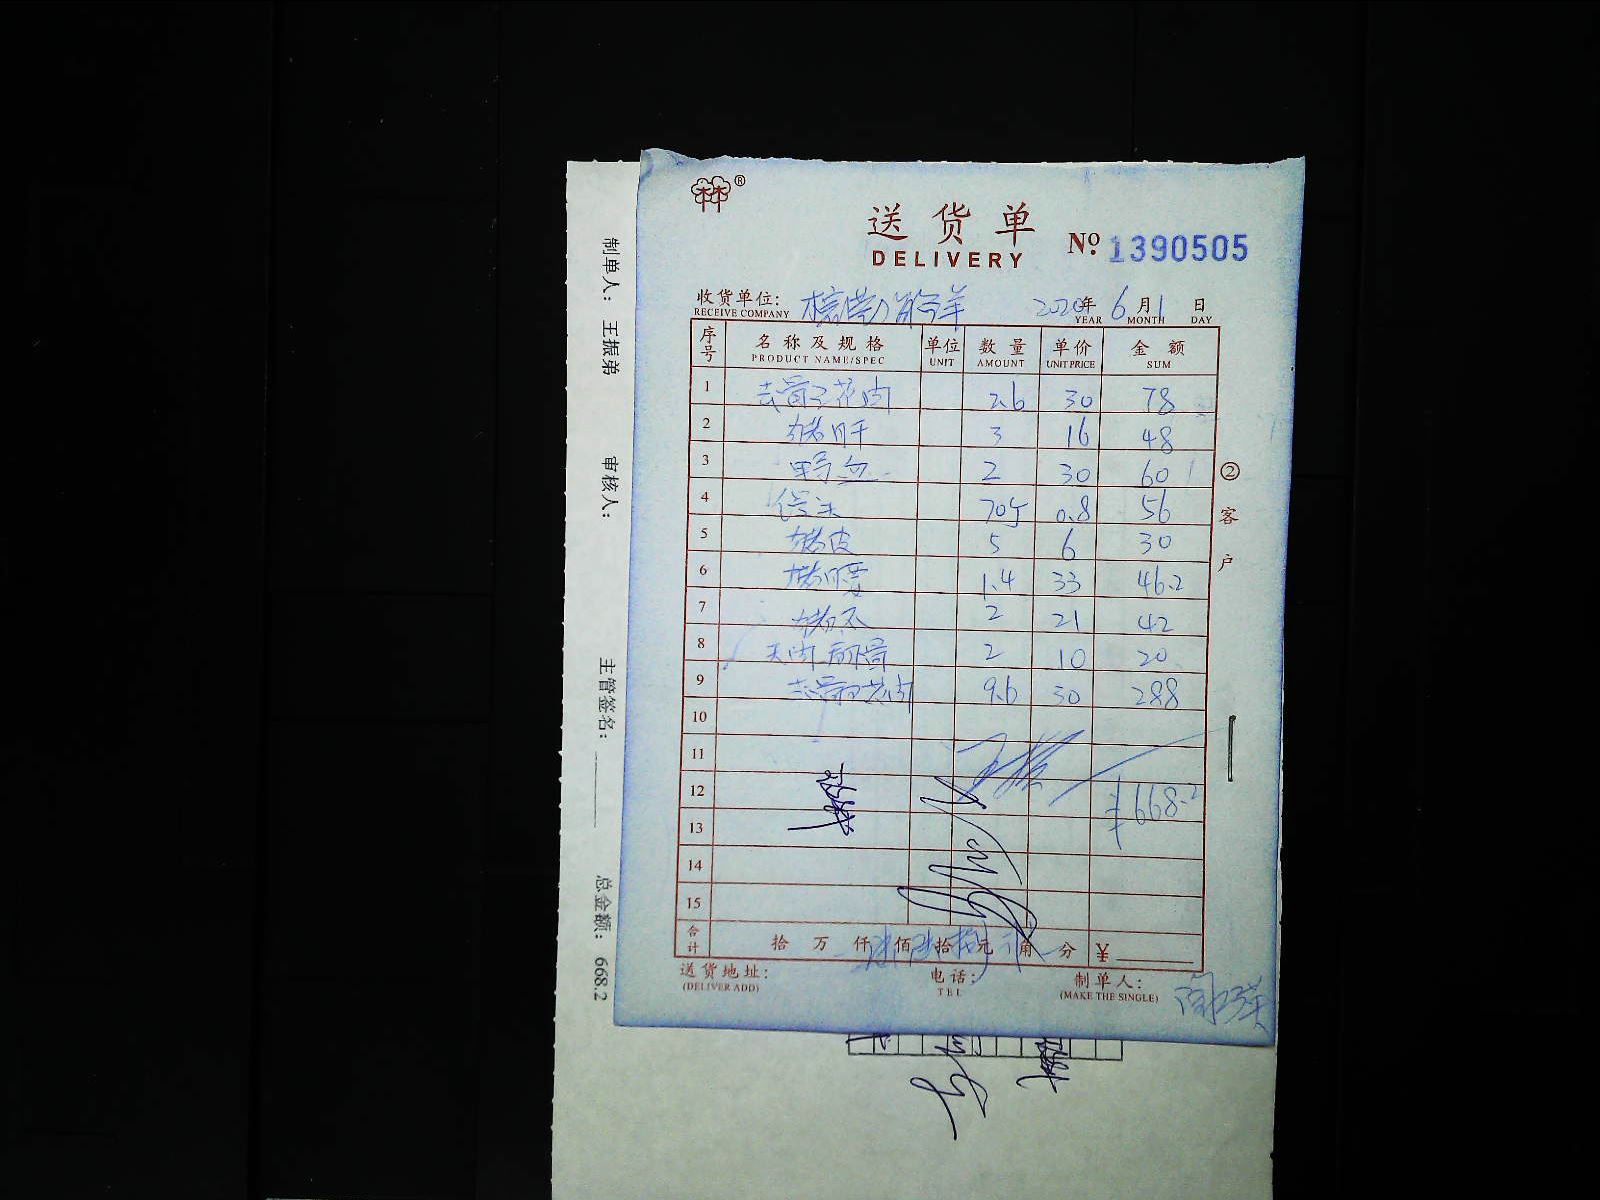 ®
送货单
DELIVERY
No. 1390505
收货单位:
RECEIVE COMPANY
2020年 6月 1日
YEAR MONTH DAY
序号 名称及规格 单位 数量 单价 金额
PRODUCT NAME/SPEC UNIT AMOUNT UNIT PRICE SUM
1 去骨五花肉 2.6 30 78
2 猪肝 3 16 48
3 2 30 60
4 馒头 70个 0.8 56
5 猪皮 5 6 30
6 猪腰 1.4 33 46.2
7 2 21 42
8 2 10 20
9 去骨五花肉 9.6 30 288
10
11
12 ¥668.2
13
14
15
合计 拾 万 仟 佰 拾 元 角 分 ¥
送货地址:
(DELIVER ADD)
电话:
TEL
制单人:
(MAKE THE SINGLE)
②客户
制单人: 王振弟 审核人: 主管签名: 总金额: 668.2